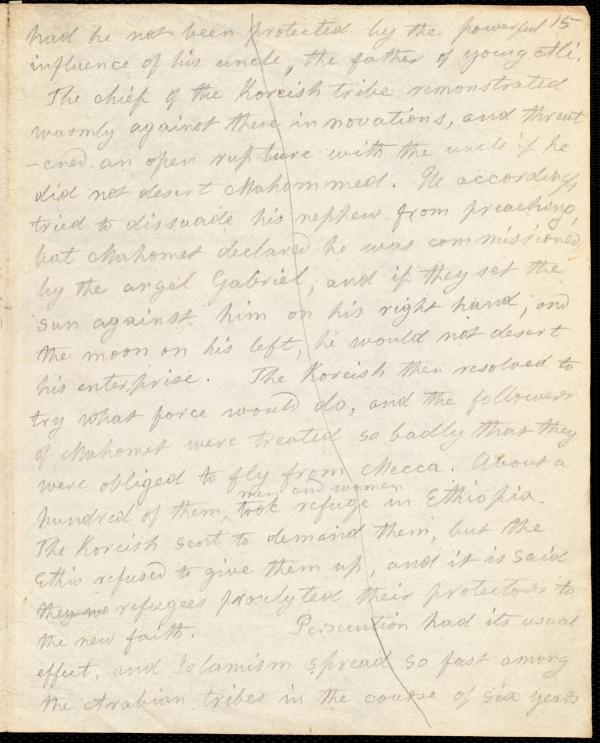 15
had he not been protected by the powerful
influence of his uncle, the father of young Ali.
The chief of the Koreish tribe remonstrated
warmly against these innovations, and threat
-ened an open rupture with the uncle if he
did not desert Mahommed. He accordingly
tried to dissuade his nephew from preaching,
but Mahomet declared he was commissioned
by the angel Gabriel, and if they set the
sun against him on his right hand, and
the moon on his left, he would not desert
his enterprise. The Koreish then resolved to
try what force would do, and the followers
of Mahomet were treated so badly that they
were obliged to fly from Mecca. About a
men and women
hundred of them, took refuge in Ethiopia.
The Koreish sent to demand them, but the
Ethis refused to give them up, and it is said
they we refugees proselyted their protectors to
the new faith. Persecution had its usual
effect, and Islamism spread so fast among
the Arabian tribes in the course of six years